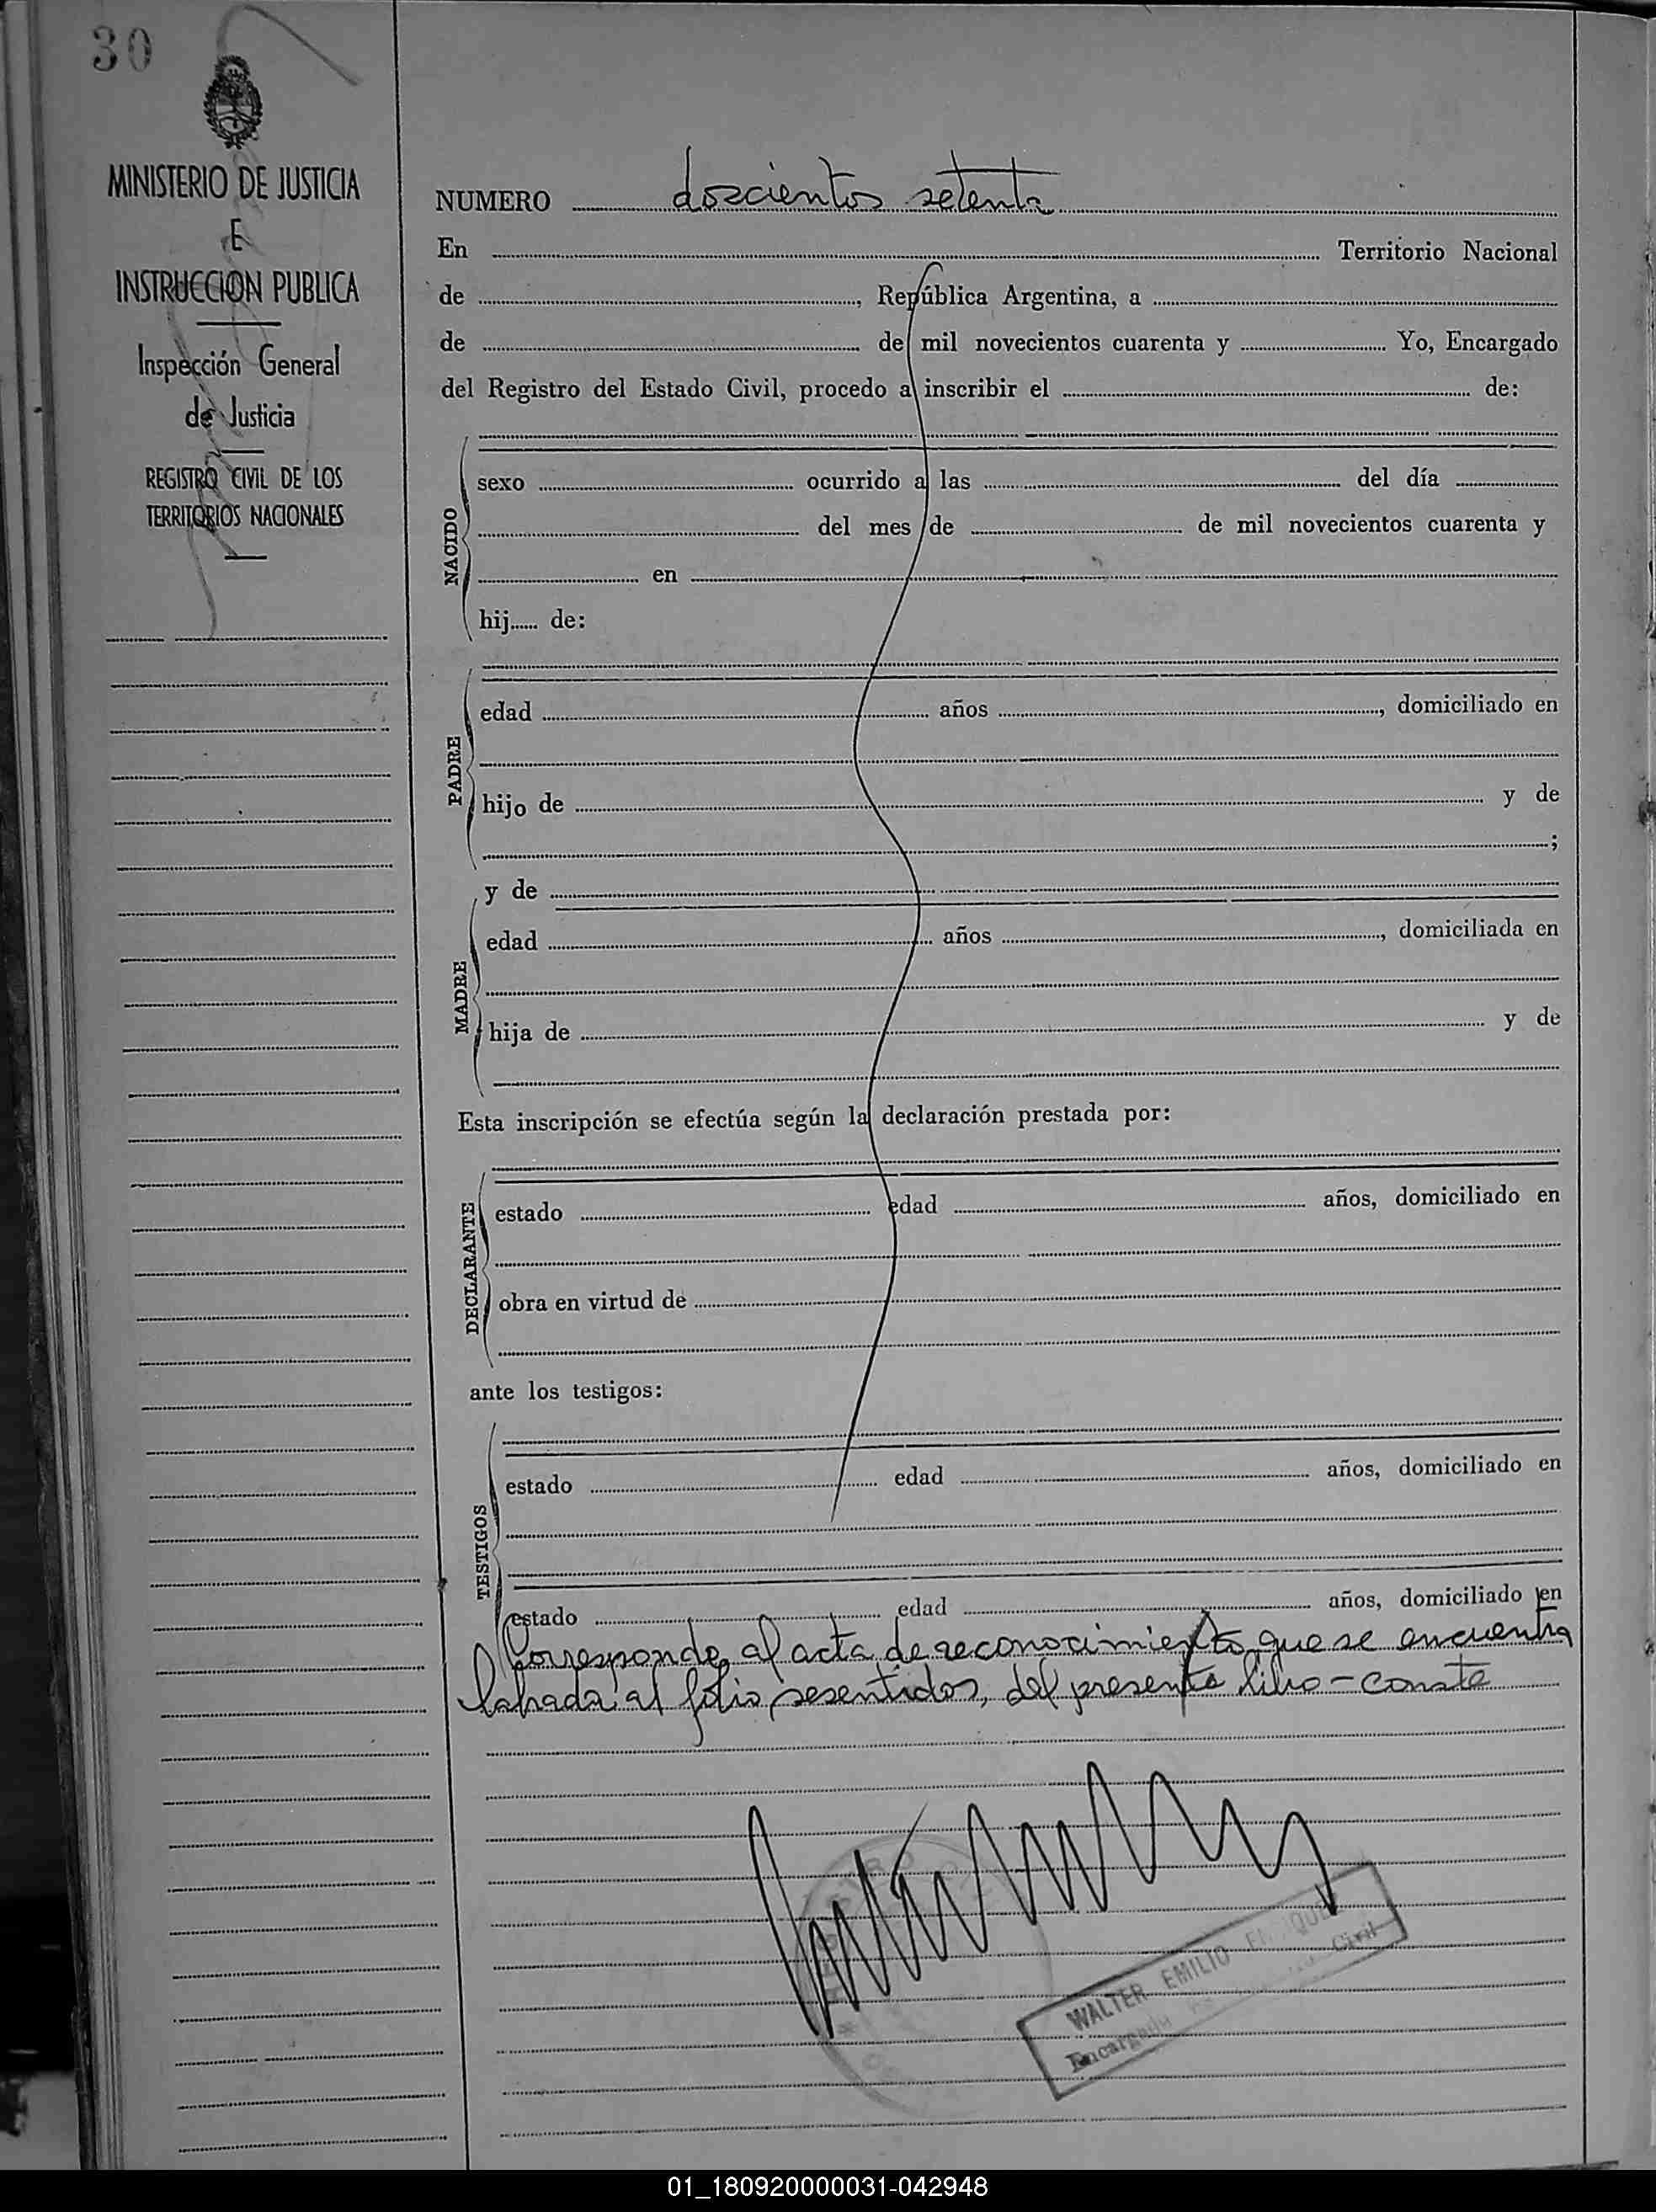 30
MINISTERIO DE JUSTICIA
E
INSTRUCCION PUBLICA
Inspección General
de Justicia
REGISTRO CIVIL DE LOS
TERRITORIOS NACIONALES
NUMERO doscientos setenta
En Territorio Nacional
de , República Argentina, a
de de mil novecientos cuarenta y Yo, Encargado
del Registro del Estado Civil, procedo a inscribir el de:
NACIDO
sexo ocurrido a las del día
del mes de de mil novecientos cuarenta y
en
hij...... de:
PADRE
edad años , domiciliado en
hijo de y de
;
y de
MADRE
edad años , domiciliada en
hija de y de
Esta inscripción se efectúa según la declaración prestada por:
DECLARANTE
estado edad años, domiciliado en
obra en virtud de
ante los testigos:
TESTIGOS
estado edad años, domiciliado en
estado edad años, domiciliado en
Corresponde al acta de reconocimiento que se encuentra
labrada al folio sesentidos, del presente libro - conste
WALTER EMILIO
Encargado Civil
01_180920000031-042948